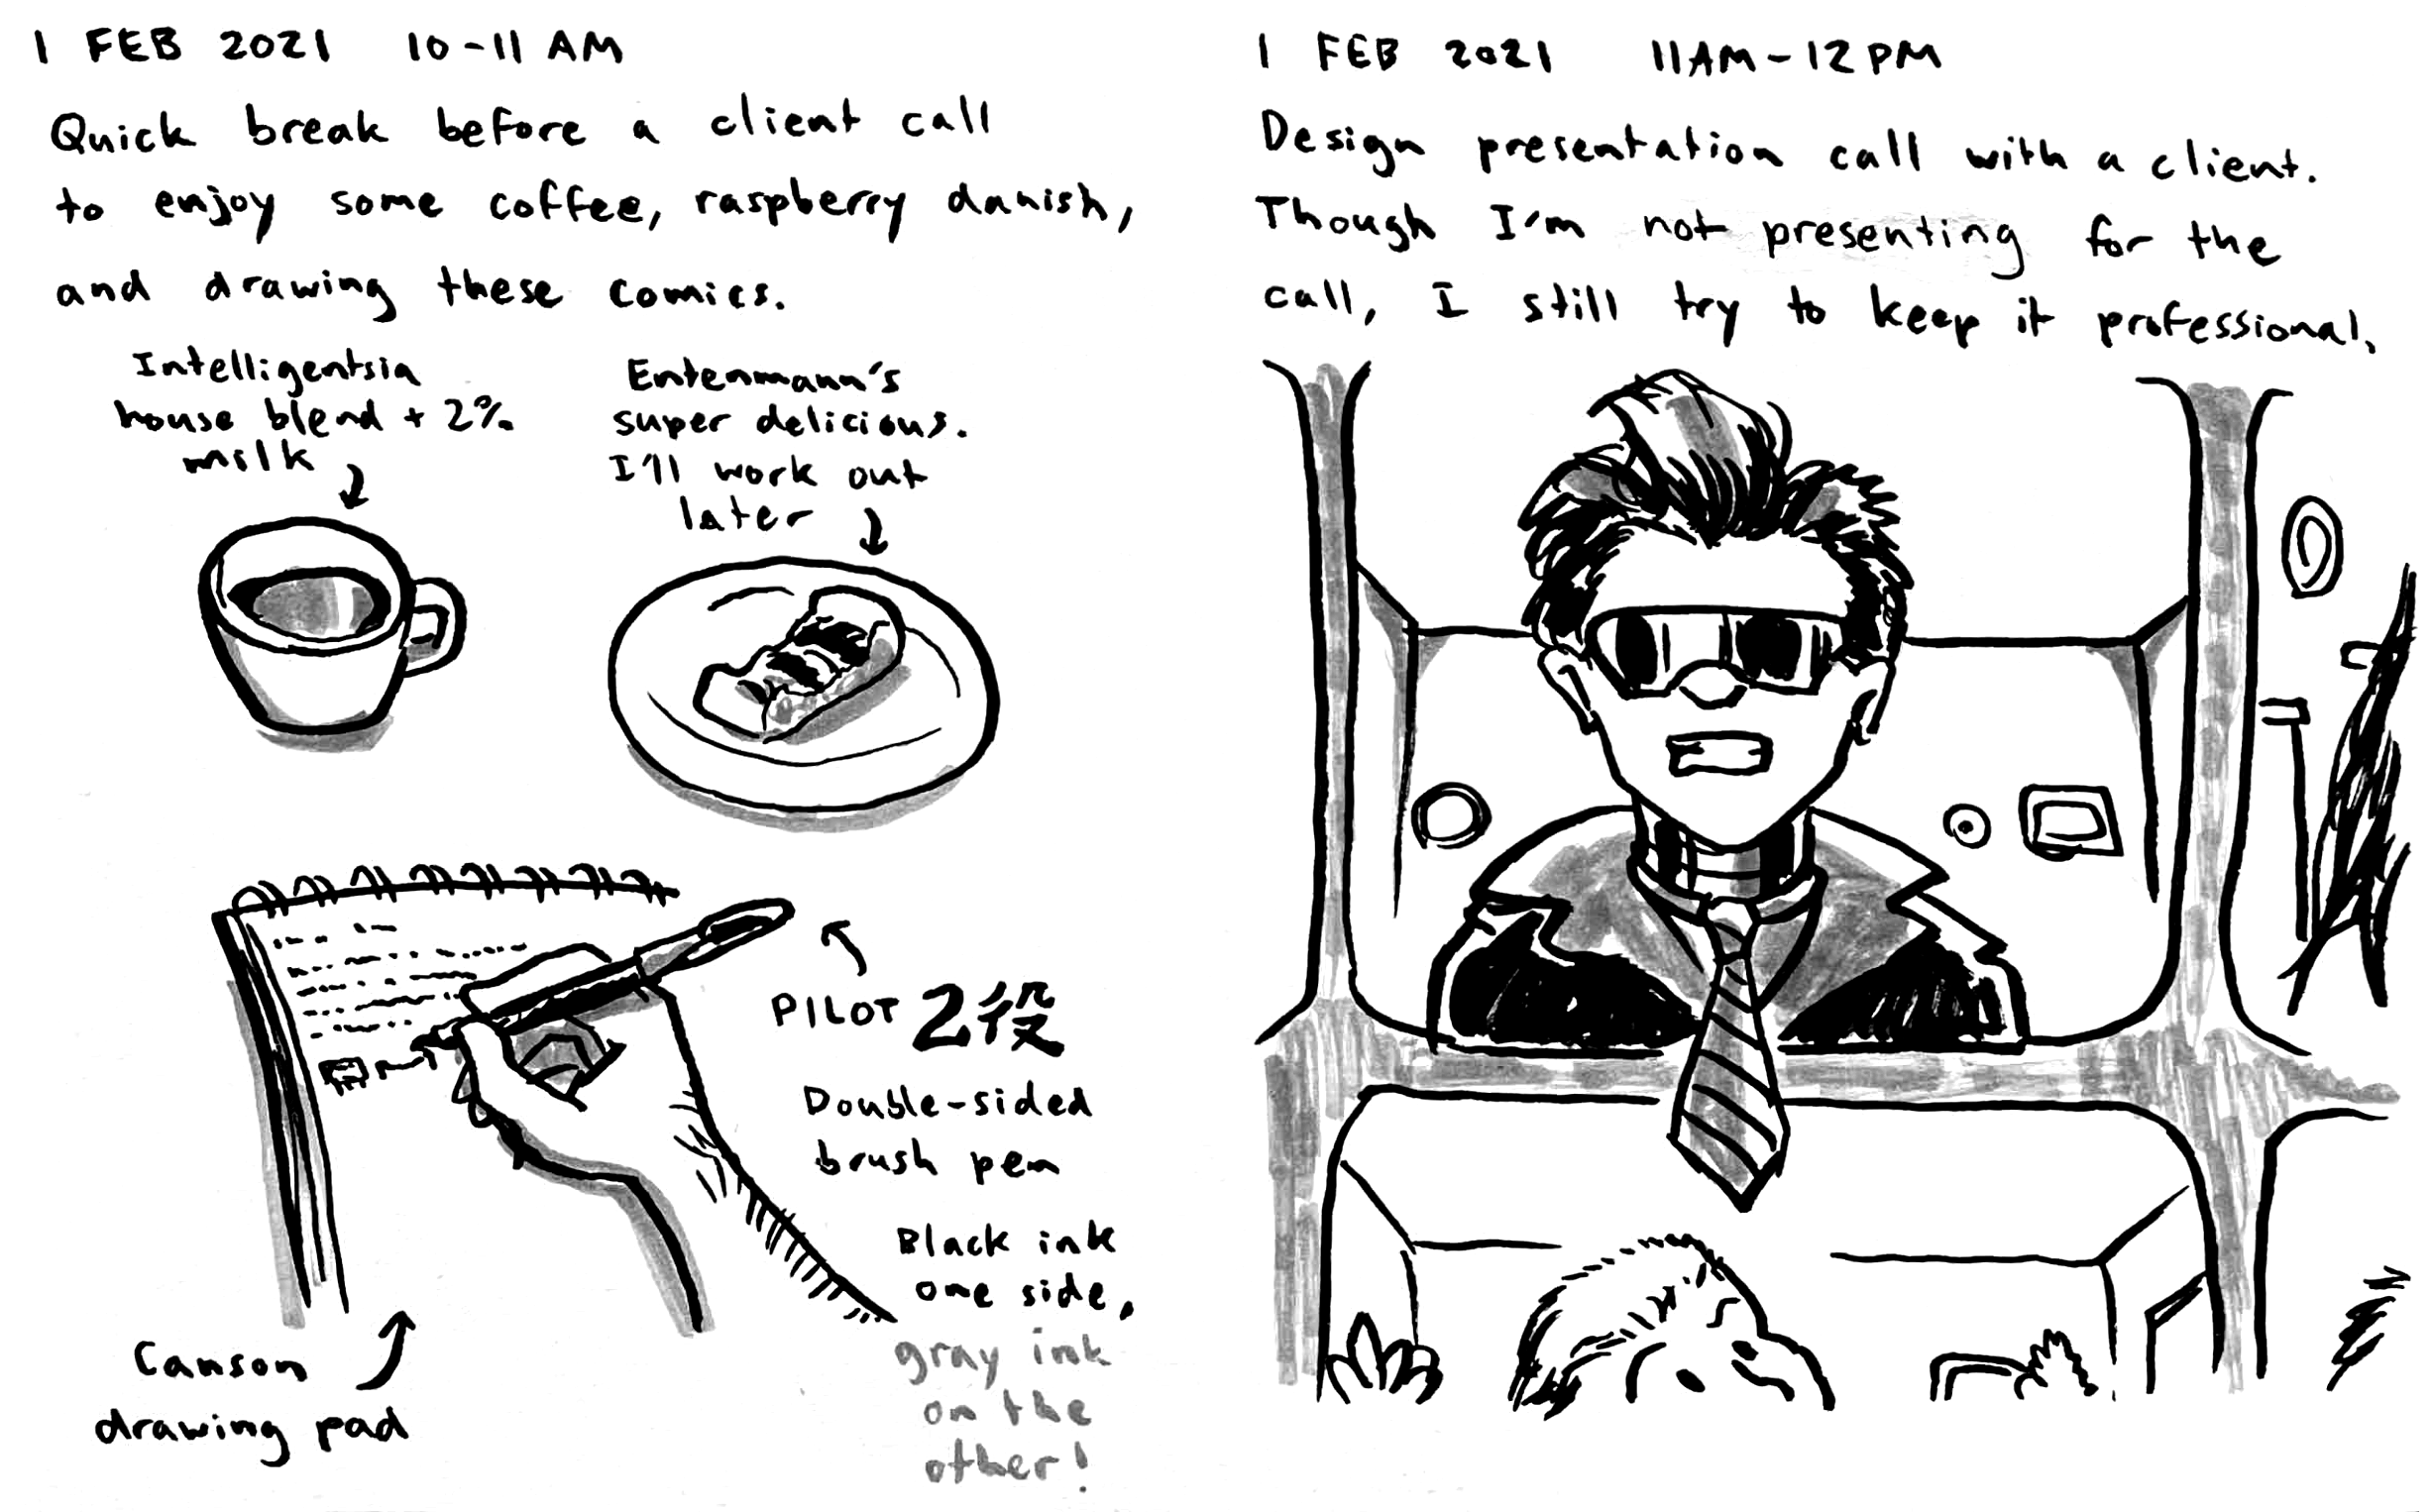 1 FEB 2021 10-11 AM
Quick break before a client call
to enjoy some coffee, raspberry danish,
and drawing these comics.
Intelligentsia
house blend + 2%
milk
Entenmann's
super delicious.
I'll work out
later
PILOT 2役
Double-sided
brush pen
Black ink
one side,
gray ink
on the
other!
Canson
drawing pad
1 FEB 2021 11AM-12PM
Design presentation call with a client.
Though I'm not presenting for the
call, I still try to keep it professional.